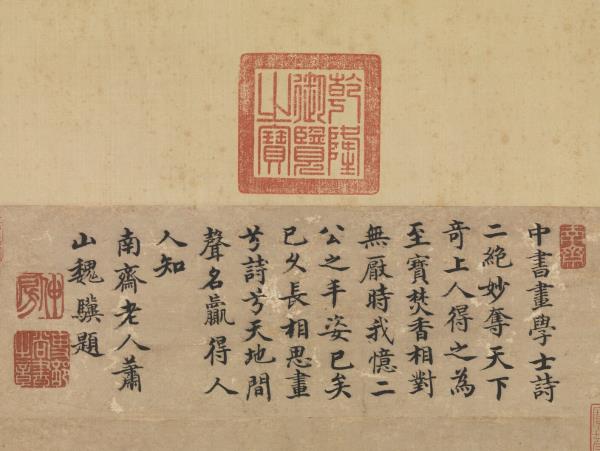 乾隆御覽之寶
中書畫學士詩
二絕妙奪天下
奇上人得之為
至寶焚香相對
無厭時我憶二
公之丰姿已矣
已久長相思畫
兮詩兮天地間
聲名贏得人
人知
南齋老人蕭
山魏驥題
仲房